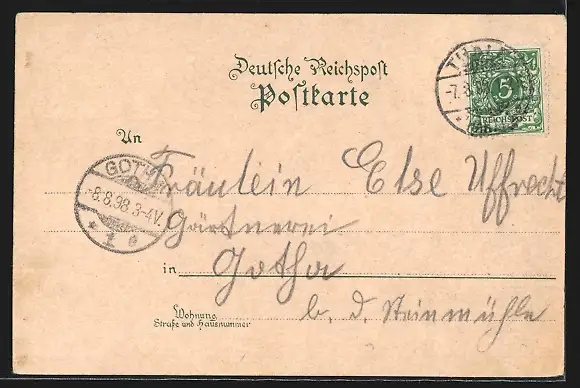 Deutsche Reichspost
Postkarte
THALE
-7.8.98
5
REICHSPOST
An
Fräulein Else Uffrecht
GOTHA
-8.8.98.3-4V.
* 1 e
Gärtnerei
in Gotha
b. d. Steinmühle
Wohnung
Straße und Hausnummer